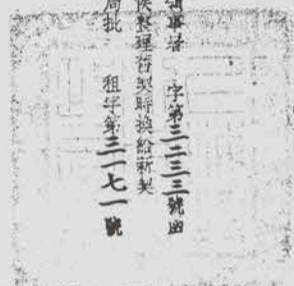 領事署　字第三二三三號函
俟整理舊契時換給新契
局批　租字第三一七一號